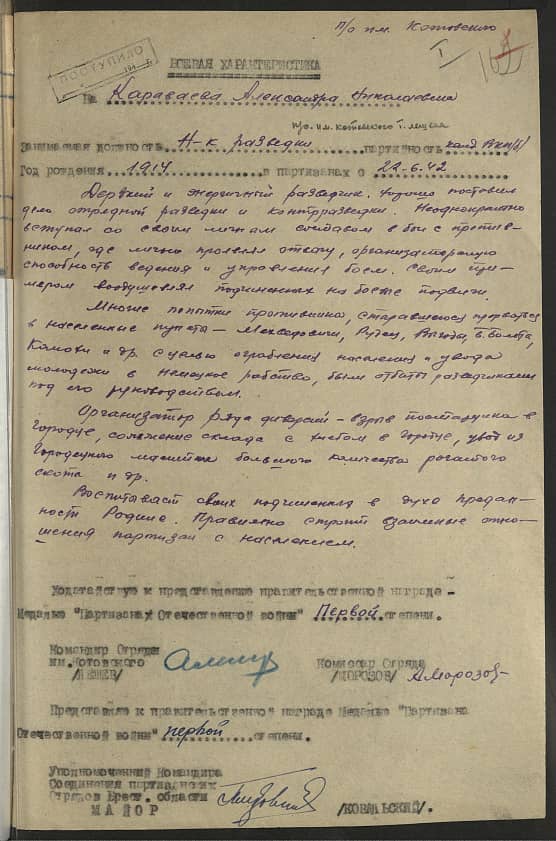 п/о им. Котовского
I
ПОСТУПИЛО
БОЕВАЯ ХАРАКТЕРИСТИКА
На Караваева Александра Николаевича
п/о. им. Котовского
Занимаемая должность Н-к разведки партийность канд ВКП/б/
Год рождения 1914 в партизанах с 22-6.42
Дерзкий и энергичный разведчик. Хорошо поставил
дело отрядной разведки и контрразведки. Неоднократно
вступал со своим личным составом в бои с против-
ником, где лично проявлял отвагу, организаторскую
способность ведения и управления боем. Своим при-
мером воодушевлял подчиненных на боевые подвиги.
Многие попытки противника, старавшегося прорваться
в населенные пункты – Мехведовичи, Рудец, Выгоды, В. Болота,
Камохи и др. с целью ограбления населения и увода
молодежи в Немецкое рабство, были отбиты разведчиками
под его руководством.
Организатор ряда диверсий – взрыв постарунка в
Городце, сожжение склада с житом в Городце, увод из
Городецкого маентка большого количества рогатого
скота и др.
Воспитывает своих подчиненных в духе предан-
ности Родине. Правильно строит взаимные отно-
шения партизан с населением.
Ходатайствую к представлению правительственной награде -
Медалью "Партизана Отечественной войны" Первой степени.
Командир Отряда
им. Котовского
/ЛЕШЕВ/
Комиссар Отряда
/МОРОЗОВ/ АМорозов
Представляю к правительственной награде Медалью "Партизана
Отечественной войны" первой степени.
Уполномоченный Командира
Соединения партизанских
Отрядов Брест. области
МАЙОР /КОВАЛЬСКИЙ/.